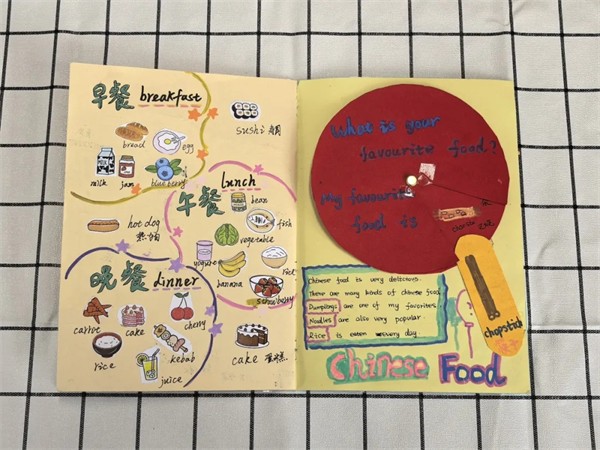 早餐 breakfast
bread
egg
milk
jam
blueberry
sushi
午餐 lunch
bean
fish
vegetable
hot dog
热狗
yogurt
banana
rice
strawberry
晚餐 dinner
carrot
cake
cherry
rice
kebab
juice
cake 蛋糕
What is your
favourite food?
My favourite
food is
Chinese food is very delicious.
There are many kinds of chinese food
Dumplings are one of my favorites
Noodles are also very popular
Rice is eaten every day
chopstick
Chinese Food